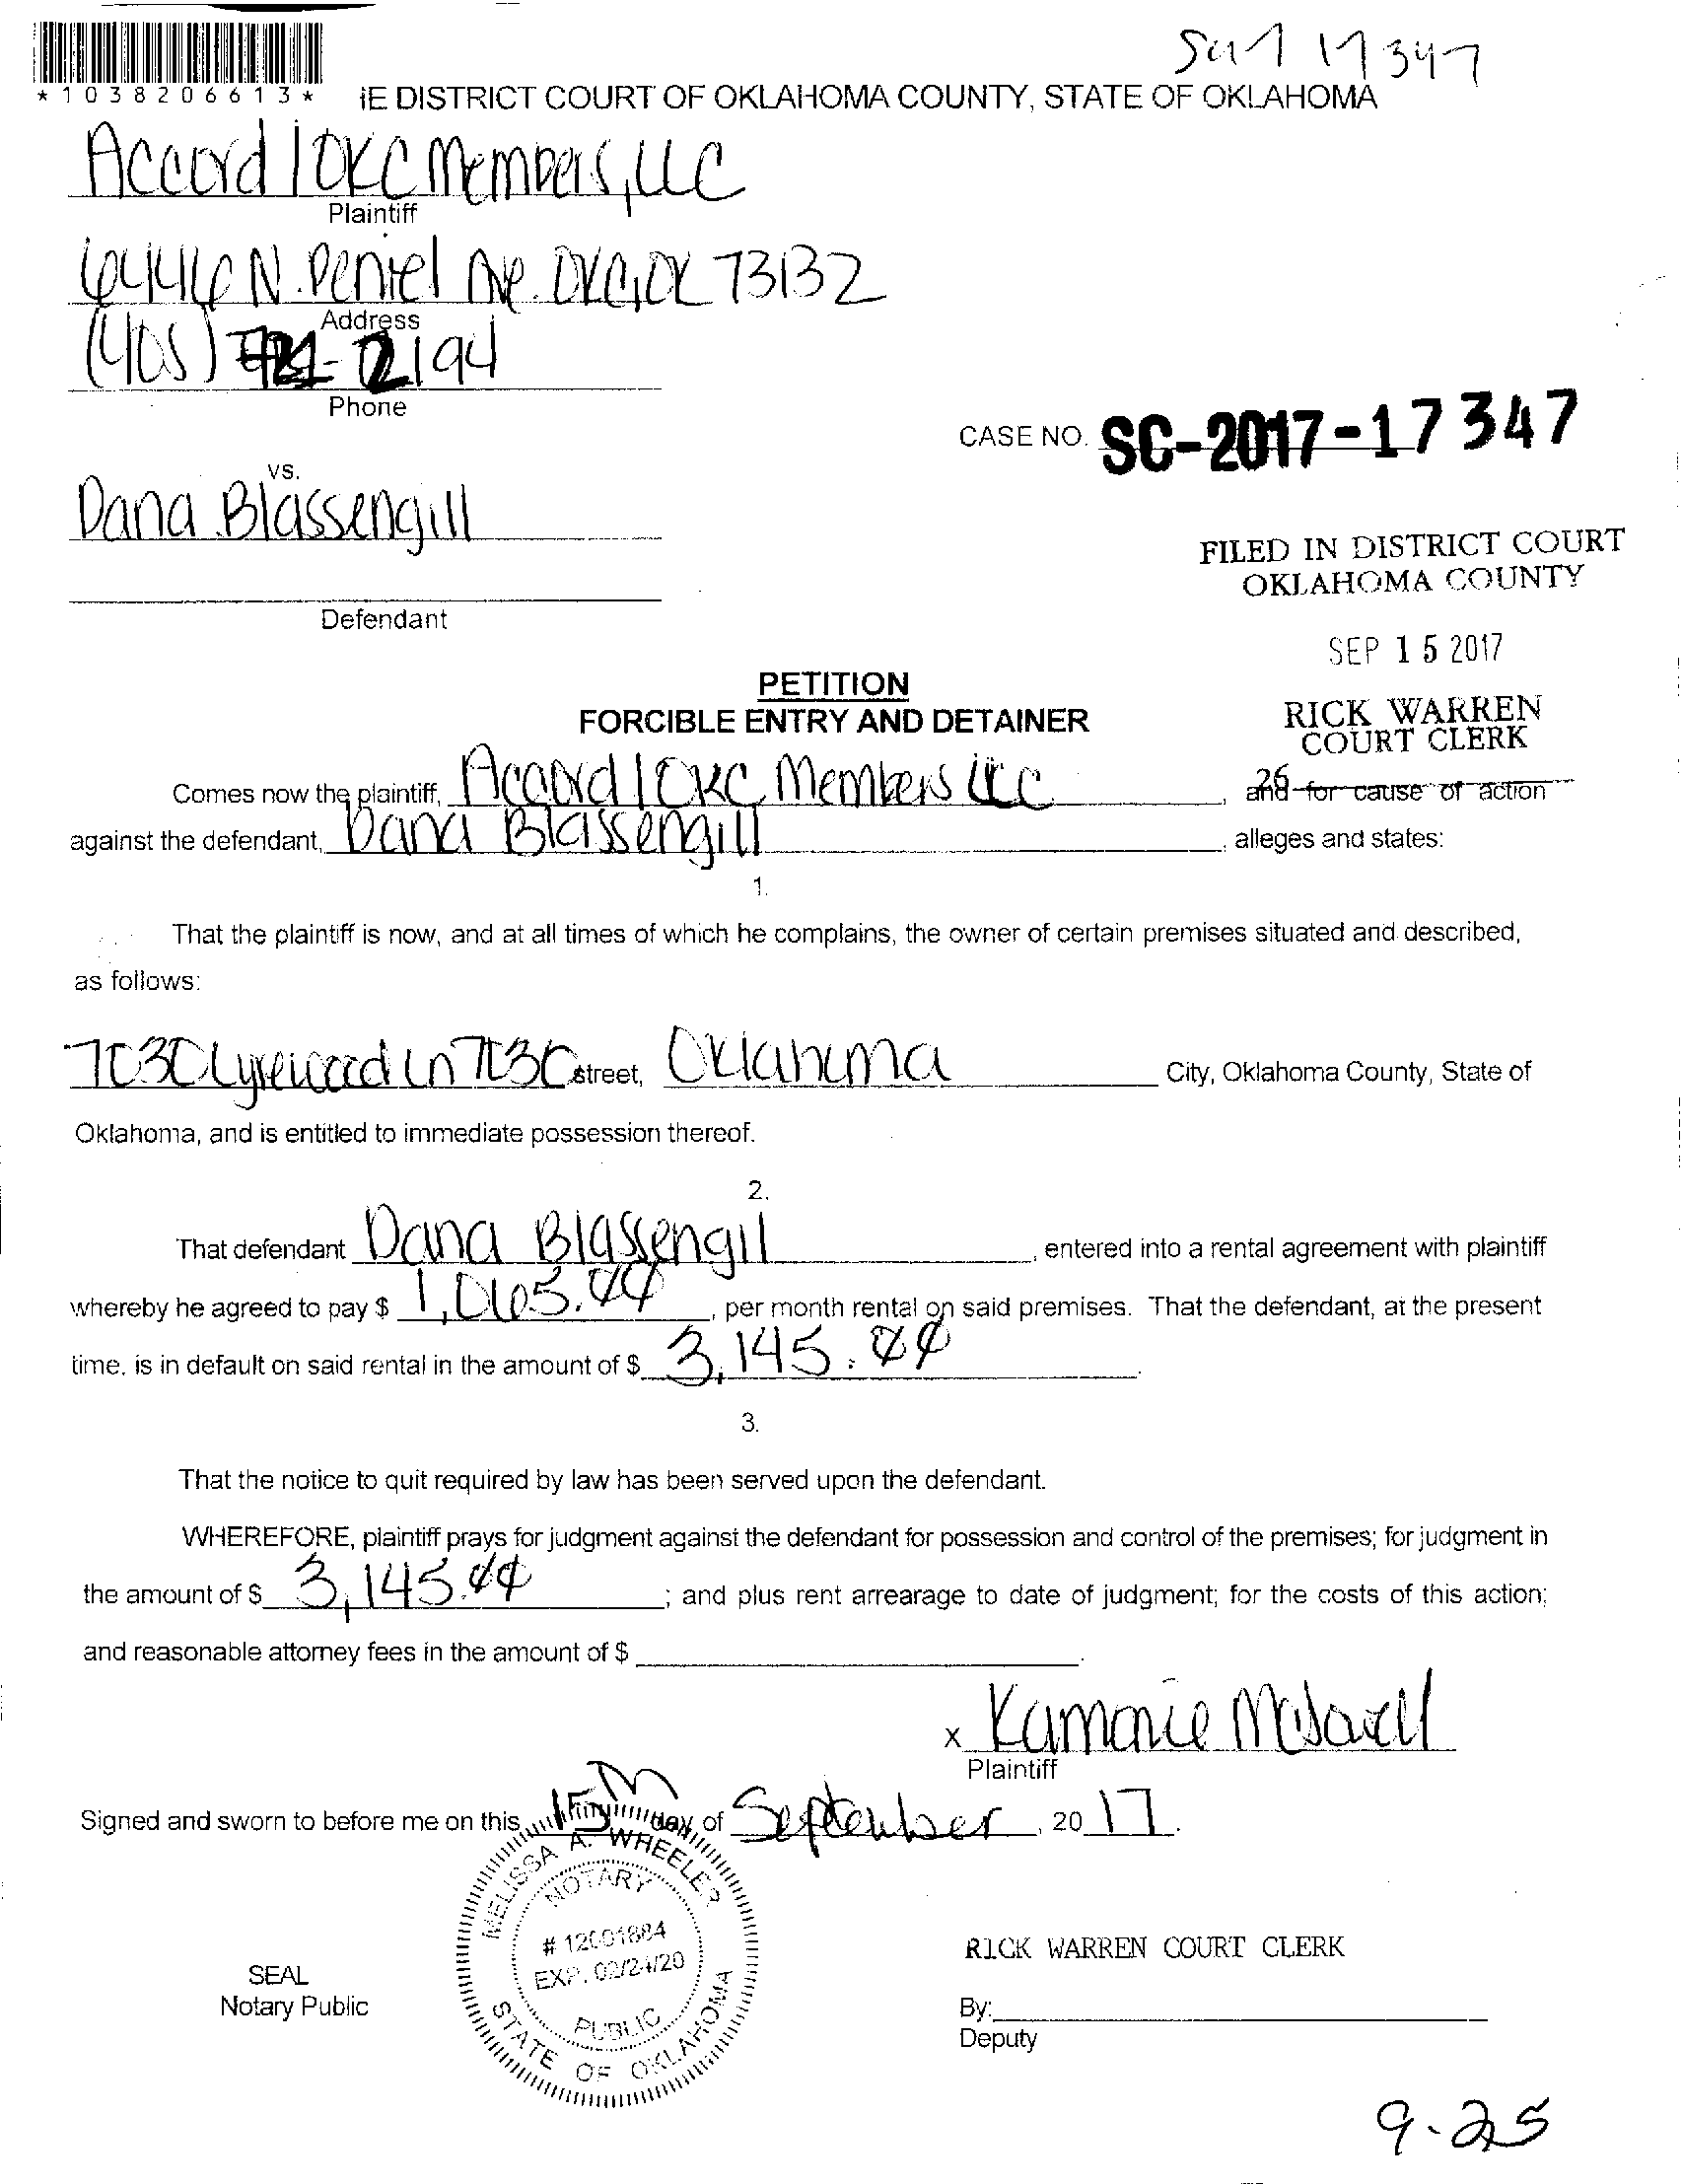 SC17 17347
*1038206613*
IE DISTRICT COURT OF OKLAHOMA COUNTY, STATE OF OKLAHOMA
Accord / OKC Members, LLC
Plaintiff
6446 N. Peniel Ave. OKC, OK 73132
Address
(405) 721-2194
Phone
CASE NO. SC-2017-17347
vs.
Dana Blassengill
Defendant
FILED IN DISTRICT COURT
OKLAHOMA COUNTY
SEP 15 2017
RICK WARREN
COURT CLERK
26
PETITION
FORCIBLE ENTRY AND DETAINER
Comes now the plaintiff, Accord / OKC Members LLC, and for cause of action
against the defendant, Dana Blassengill, alleges and states:
1.
That the plaintiff is now, and at all times of which he complains, the owner of certain premises situated and described,
as follows:
7030 Lyrewood Ln 7130 street, Oklahoma City, Oklahoma County, State of
Oklahoma, and is entitled to immediate possession thereof.
2.
That defendant Dana Blassengill, entered into a rental agreement with plaintiff
whereby he agreed to pay $ 1,065.00, per month rental on said premises. That the defendant, at the present
time, is in default on said rental in the amount of $ 3,145.00.
3.
That the notice to quit required by law has been served upon the defendant.
WHEREFORE, plaintiff prays for judgment against the defendant for possession and control of the premises; for judgment in
the amount of $ 3,145.00; and plus rent arrearage to date of judgment; for the costs of this action;
and reasonable attorney fees in the amount of $ .
x Kamonie
Plaintiff
Signed and sworn to before me on this 15th day of September, 2017.
MELISSA A. WHEELER
NOTARY
# 12001884
EXP. 02/24/20
PUBLIC
STATE OF OKLAHOMA
SEAL
Notary Public
RICK WARREN COURT CLERK
By:
Deputy
9-25